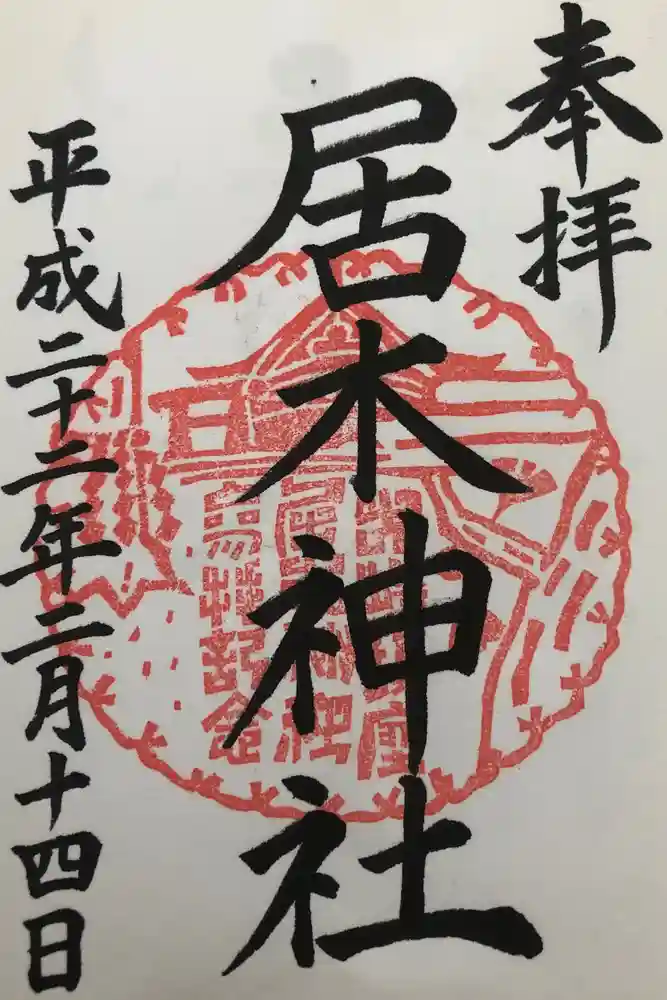 奉拝
居木神社
平成二十二年二月十四日